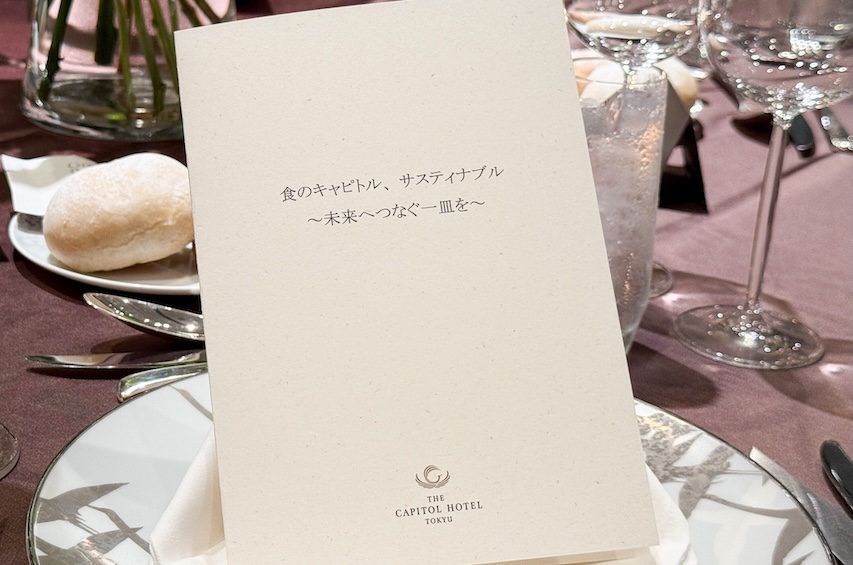 食のキャピトル、サスティナブル
～未来へつなぐ一皿を～
THE
CAPITOL HOTEL
TOKYU